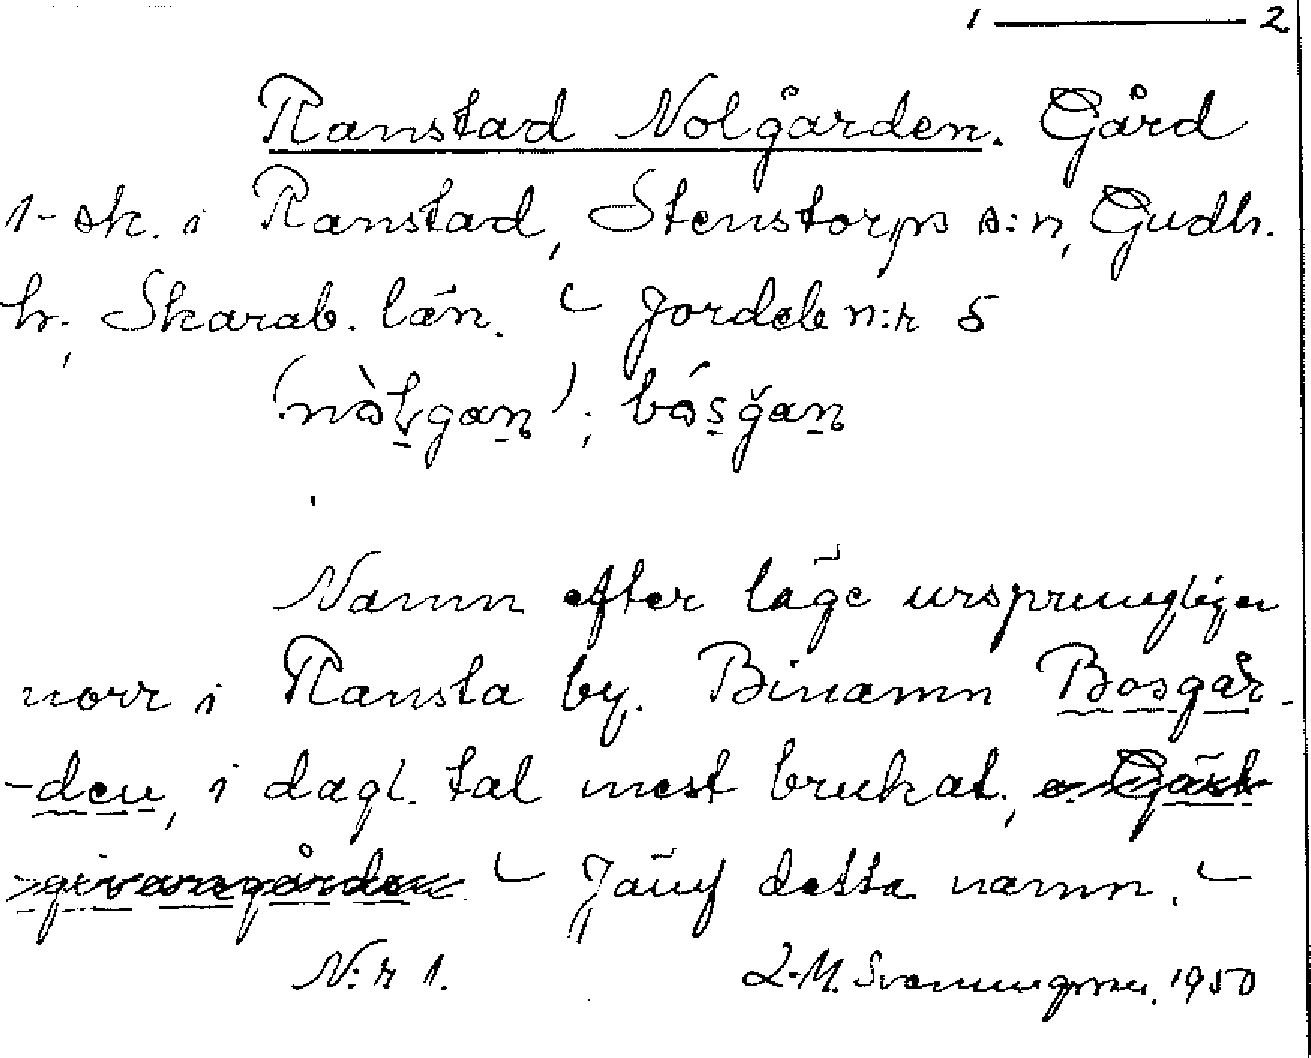 1 — 2
Ranstad Nolgården. Gård
1-sk. i Ranstad, Stenstorps s:n, Gudh.
h., Skarab. län. – Jordeb n:r 5
(nòḷgaṇ); bósğaṇ
Namn efter läge ursprungligen
norr i Ransta by. Binamn Bosgår-
-den, i dagl. tal mest brukat, o. Gäst
givaregården – Jämf detta namn. –
N:r 1. L-M. Svenningsson, 1950